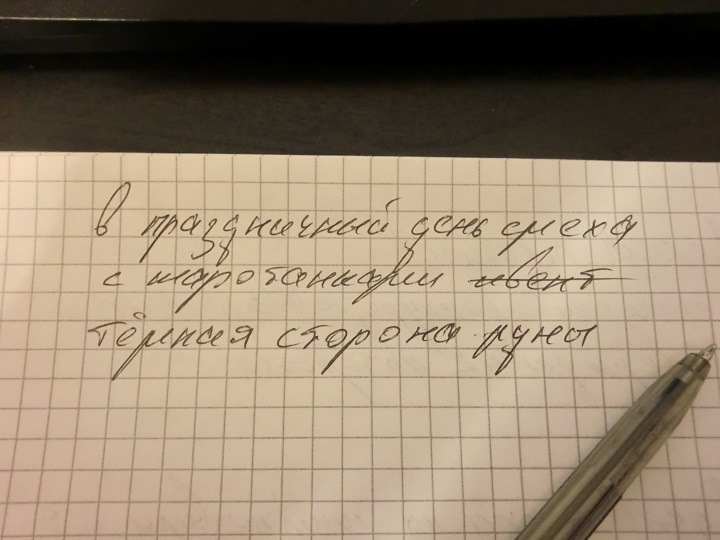 в праздничный день смеха
с шаротанками ивент
тёмная сторона луны